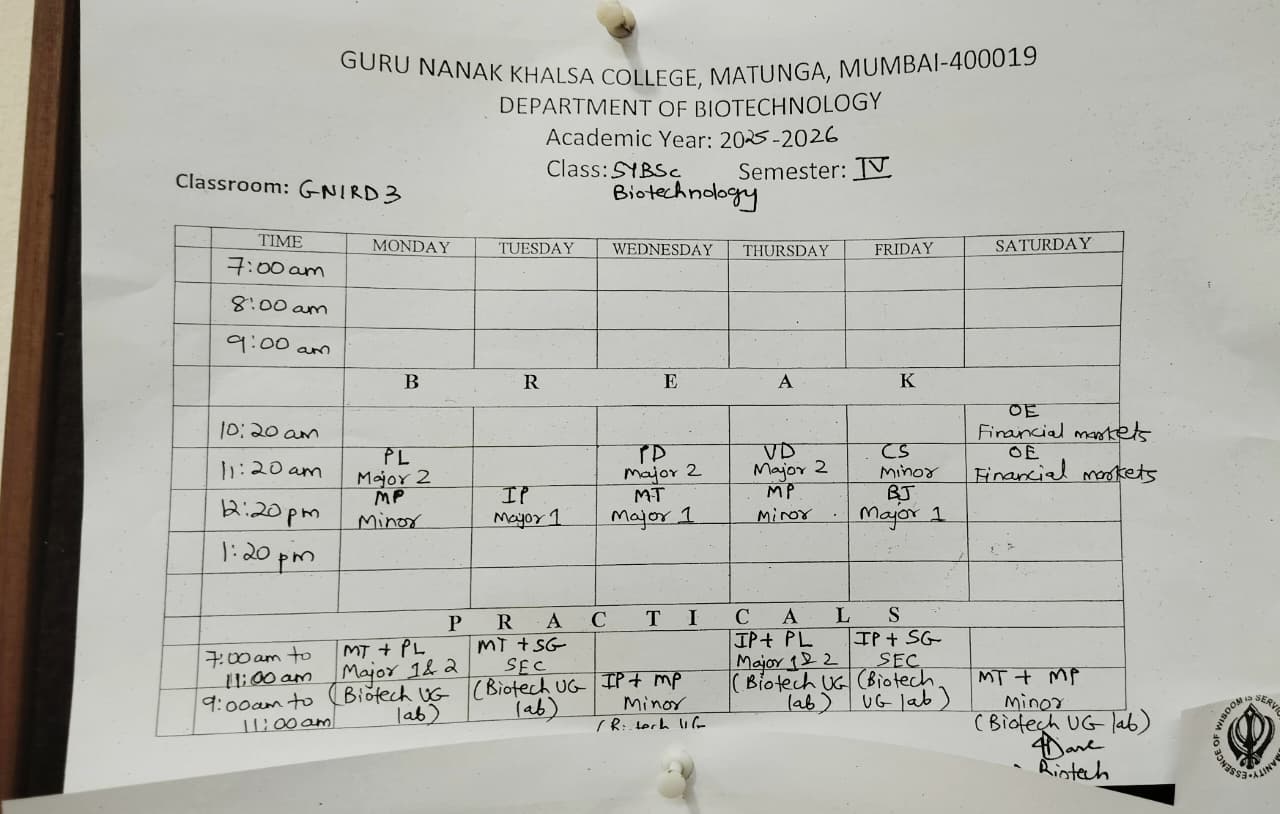 GURU NANAK KHALSA COLLEGE, MATUNGA, MUMBAI-400019
DEPARTMENT OF BIOTECHNOLOGY
Academic Year: 2025-2026
Class: SYBSc Semester: IV
Biotechnology
Classroom: GNIRD3
TIME MONDAY TUESDAY WEDNESDAY THURSDAY FRIDAY SATURDAY
7:00 am
8:00 am
9:00 am
B R E A K
OE
10:20 am Financial markets
PL PD VD CS OE
11:20 am Major 2 Major 2 Major 2 Minor Financial markets
MP IP MT MP BJ
12:20 pm Minor Major 1 Major 1 Minor Major 1
1:20 pm
P R A C T I C A L S
MT + PL MT + SG IP + PL IP + SG
7:00am to Major 1 & 2 SEC Major 1 & 2 SEC
11:00 am (Biotech UG (Biotech UG IP + MP (Biotech UG (Biotech MT + MP
9:00am to lab) lab) Minor lab) UG lab) Minor
11:00am (Biotech UG (Biotech UG lab)
Biotech
WISDOM IS SERVICE
HUMANITY-ESSENCE OF